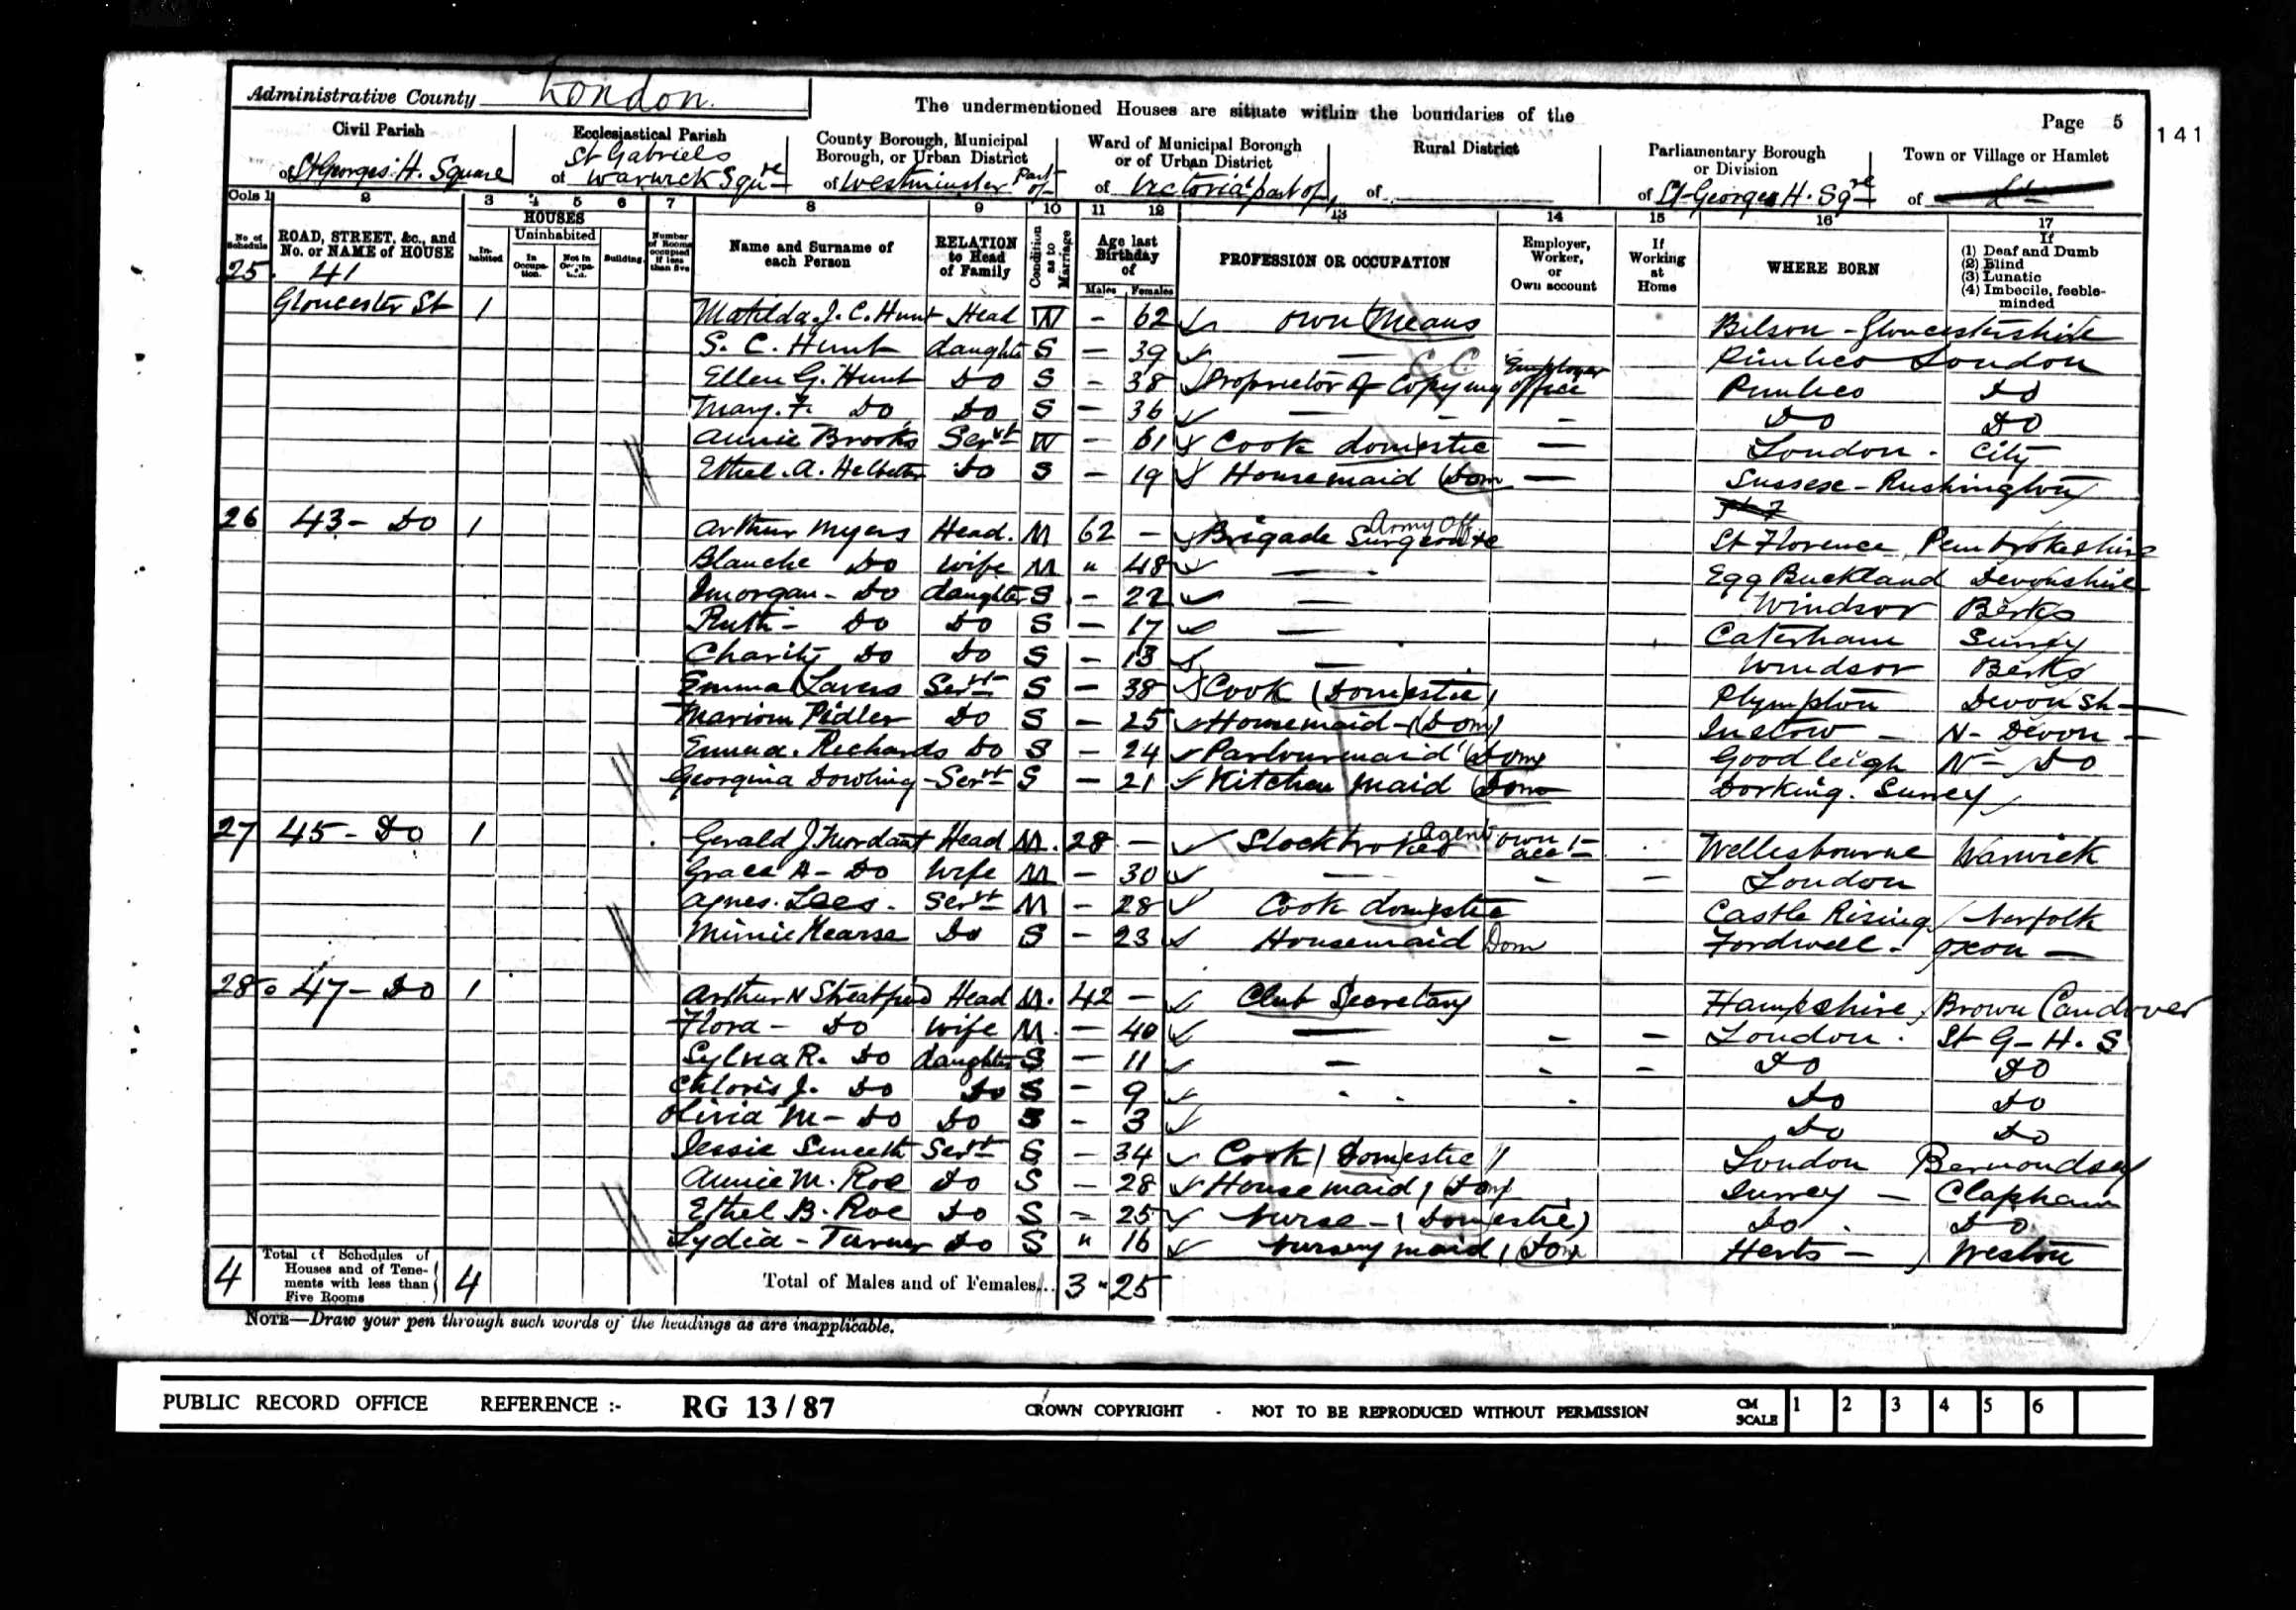 Administrative County London.
The undermentioned Houses are situate within the boundaries of the
Page 5
141
Civil Parish
of St Georges. H. Square
Ecclesiastical Parish
of St Gabriels Warwick Sqre
County Borough, Municipal Borough, or Urban District
of Westminster Part of
Ward of Municipal Borough or of Urban District
of Victoria part of
Rural District
of
Parliamentary Borough or Division
of St Georges H. Sqre
Town or Village or Hamlet
of
Cols 1 2 3 4 5 6 7 8 9 10 11 12 13 14 15 16 17
No. of Schedule
ROAD, STREET, &c., and No. or NAME of HOUSE
HOUSES
Inhabited
Uninhabited
In Occupation.
Not in Occupation.
Building.
Number of Rooms occupied if less than five
Name and Surname of each Person
RELATION to Head of Family
Condition as to Marriage
Age last Birthday of
Males Females
PROFESSION OR OCCUPATION
Employer, Worker, or Own account
If Working at Home
WHERE BORN
If
(1) Deaf and Dumb
(2) Blind
(3) Lunatic
(4) Imbecile, feeble-minded
25 41
Gloucester St 1 Matilda. J. C. Hunt Head W - 62 own Means Bilson - Gloucestershire
S. C. Hunt daughter S - 39 — Pimlico London
Ellen G. Hunt Do S - 38 Proprietor of Copying office Employer Pimlico Do
Mary. F. Do Do S - 36 — Do Do
Annie Brooks Servt W - 61 Cook domestic — London. City
Ethel. A. Do S - 19 Housemaid (Dom — Sussex - Rushington
26 43 - Do 1 Arthur Myers Head. M 62 - Brigade Surgeon Army Off St Florence Pembrokeshire
Blanche Do wife M " 48 — Egg Buckland Devonshire
Do daughter S - 22 — Windsor Berks
Ruth - Do Do S - 17 — Caterham Surrey
Charity Do Do S - 13 — Windsor Berks
Emma Lavers Servt S - 38 Cook (Domestic) Plympton Devonsh
Pidler Do S - 25 Housemaid - (Dom) Instow - N- Devon
Emma. Richards Do S - 24 Parlourmaid (Dom) Goodleigh N- Do
Georgina Dowling - Servt S - 21 Kitchen maid (Dom Dorking. Surrey
27 45 - Do 1 Gerald J. Mordaunt Head M. 28 - Stockbroker Agent own acc't Wellesbourne Warwick
Grace A - Do wife M - 30 — London
Agnes. Lees. Servt M - 28 Cook domestic Castle Rising Norfolk
Minnie Hearse Do S - 23 Housemaid Dom Fordwell - Oxon -
28 47 - Do 1 Arthur N Streatfeild Head M. 42 - Club Secretary Hampshire, Brown Candover
Flora - Do wife M. - 40 — London. St G- H. S
Sylvia R. Do daughter S - 11 — Do Do
Chloris J. Do Do S - 9 Do Do
Olivia M - Do Do S - 3 Do Do
Jessie Smeeth Servt S - 34 Cook (Domestic) London Bermondsey
Annie M. Roe Do S - 28 Housemaid, (Dom) Surrey - Clapham
Ethel B. Roe Do S - 25 Nurse - (Domestic) Do Do
Lydia - Turner Do S " 16 Nursery maid, (Dom Herts - Weston
4 Total of Schedules of Houses and of Tenements with less than Five Rooms 4 Total of Males and of Females... 3 - 25
NOTE—Draw your pen through such words of the headings as are inapplicable.
PUBLIC RECORD OFFICE REFERENCE :- RG 13 / 87 CROWN COPYRIGHT - NOT TO BE REPRODUCED WITHOUT PERMISSION CM SCALE 1 2 3 4 5 6